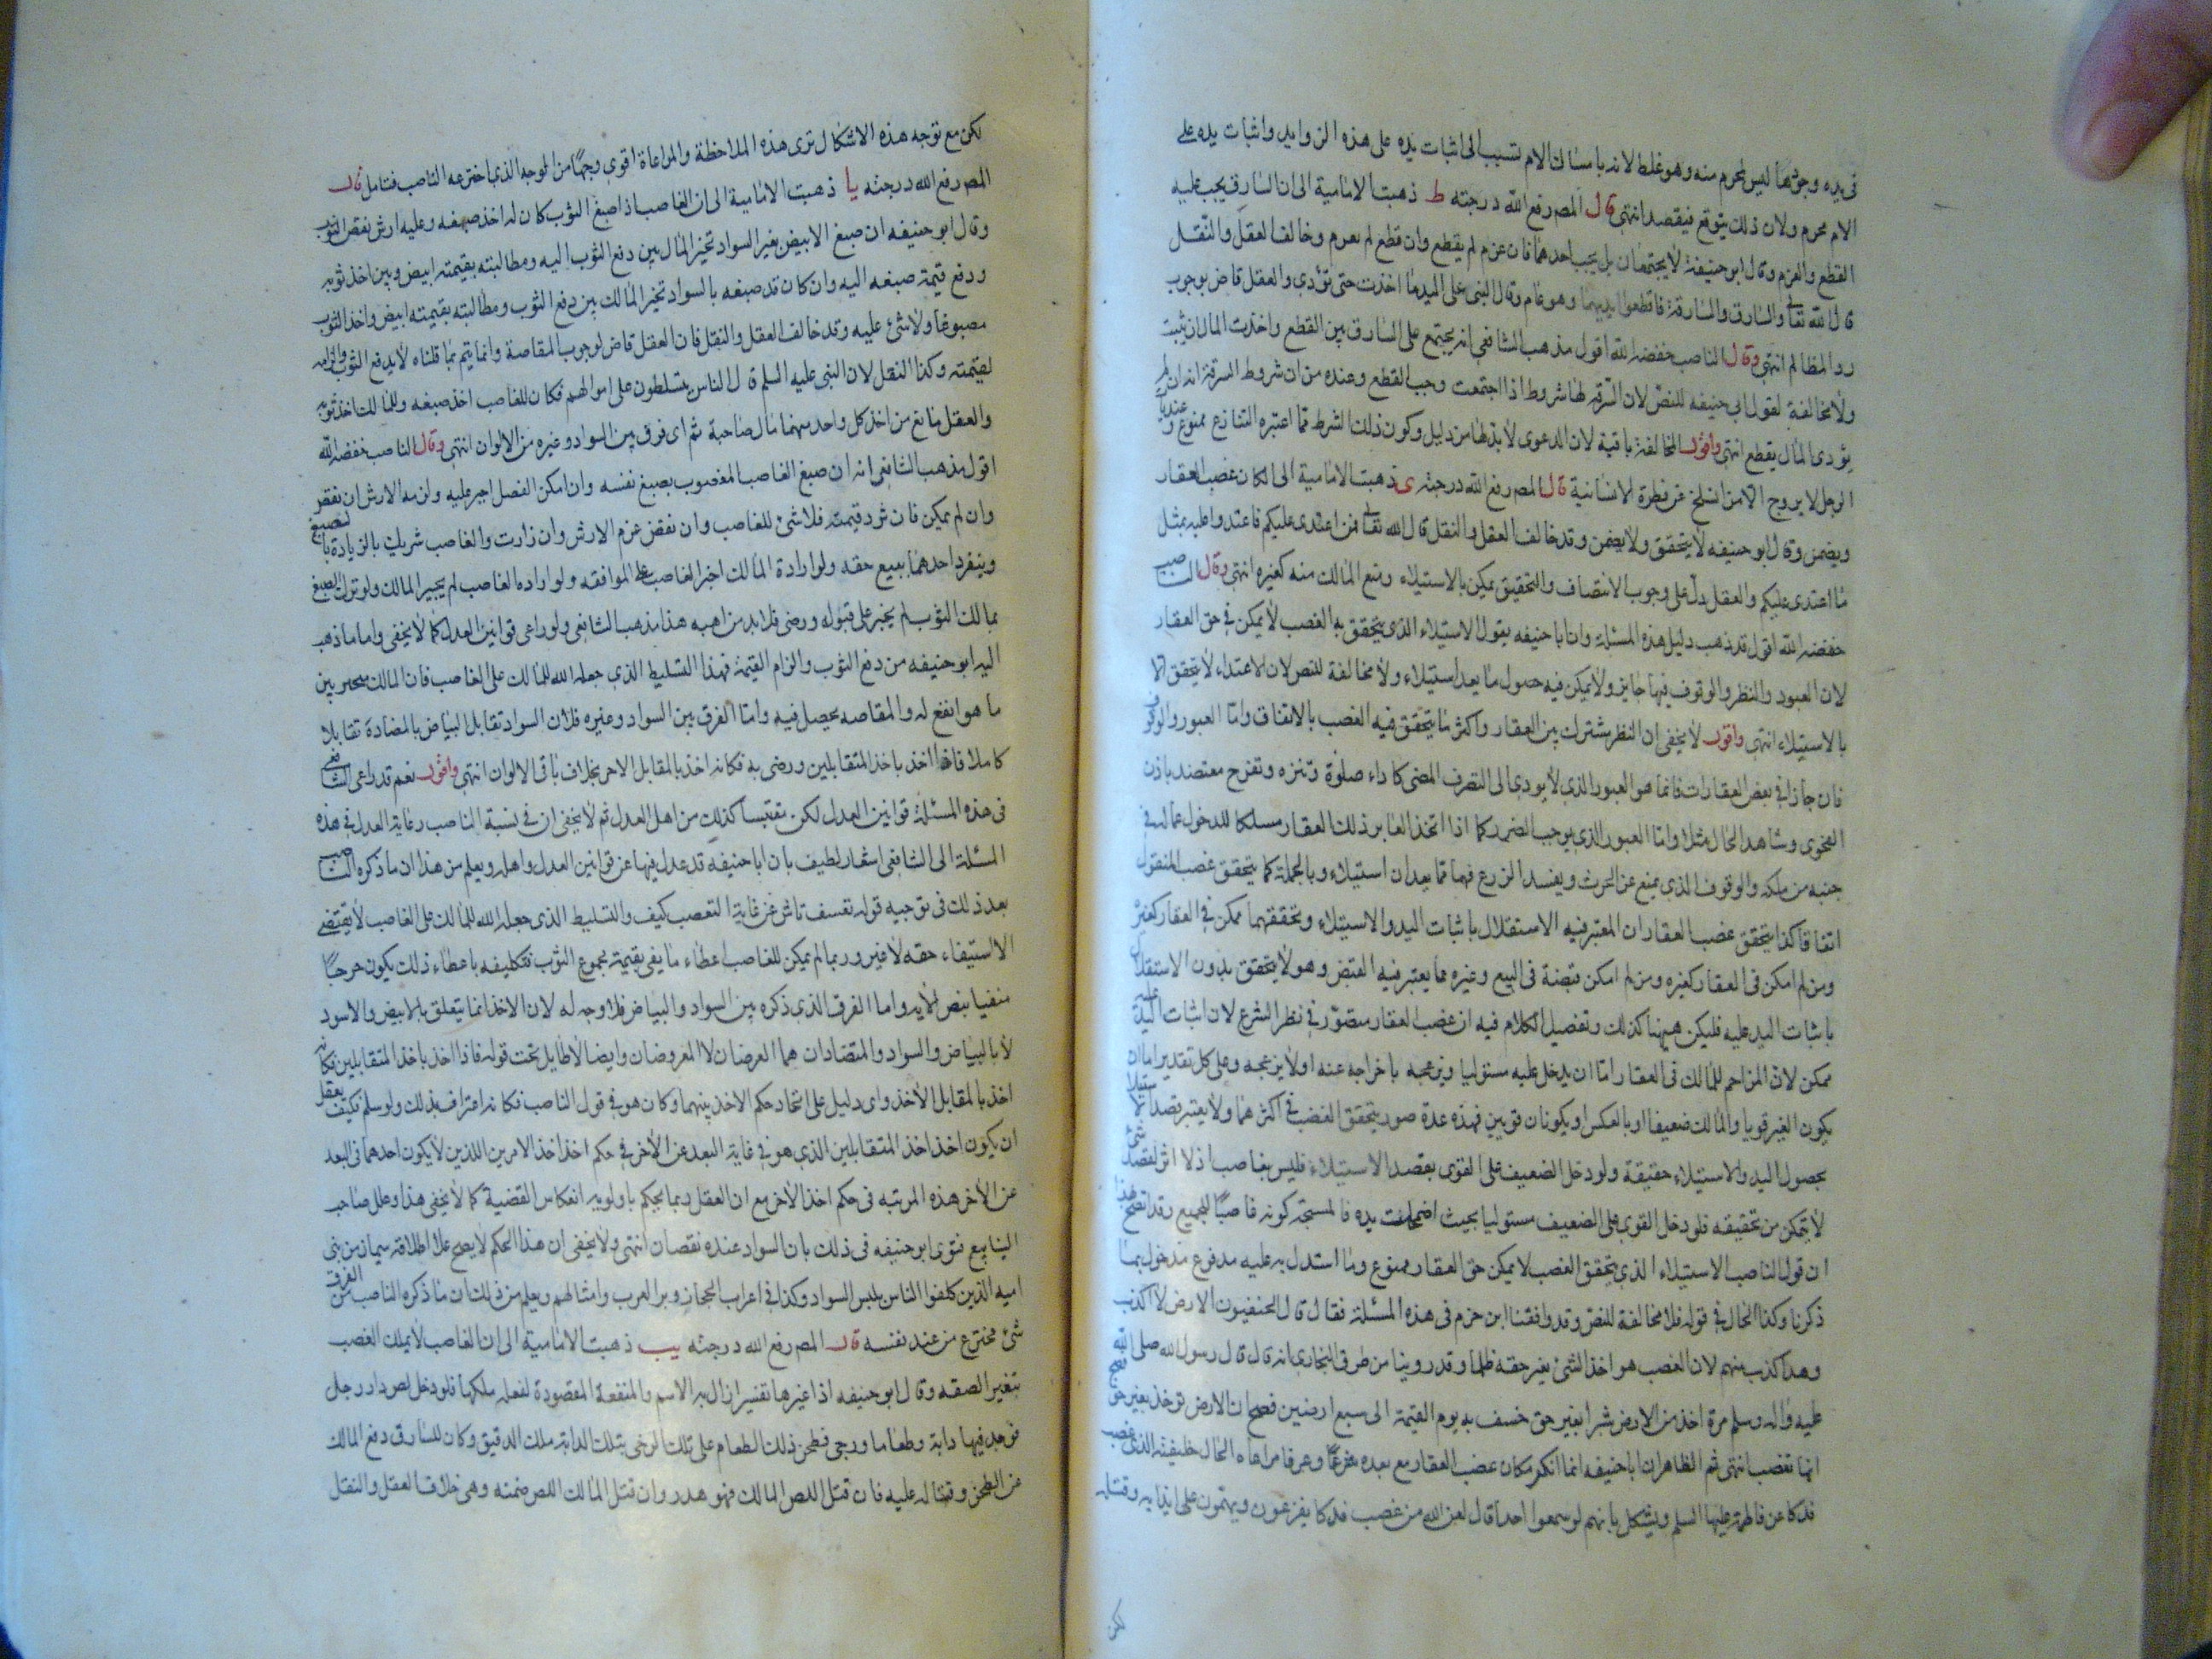 فى يده وجودها ليس لمحرم منه وهو غلط لانه بامساك الام تسبب الى اثبات يده على هذه الزوايد واثبات يده على
الام محرم ولان ذلك يتوقع فيقصد انتهى قال المصـ رفع الله درجته ط ذهبت الامامية الى ان السارق يجب عليه
القطع والغرم وقال ابو حنيفة لا يجتمعان بل يجب احدهما فان غرم لم يقطع وان قطع لم يغرم وخالف العقل والنقل
قال الله تعا والسارق والسارقة فاقطعوا ايديهما وهو عام وقال النبى على اليد ما اخذت حتى تؤدى والعقل قاض بوجوب
رد المظالم انتهى وقال الناصب خفضه الله اقول مذهب الشافعى انه يجتمع على السارق بين القطع واخذت المال ان يثبت
ولا مخالفة لقول ابى حنيفه للنص لان السرقه لها شروط اذا اجتمعت وجب القطع وعنده من ان شروط السرقة انه ان لم
يؤدى المال يقطع انتهى واقول المخالفة باقية لان الدعوى لا بد لها من دليل وكون ذلك الشرط مما اعتبره الشارع ممنوع و
الرجل لا يروج الا من انسلخ عن فطرة الانسانية قال المصـ رفع الله درجته ى ذهبت الامامية الى امكان غصب العقار
ويضمن وقال ابو حنيفه لا يتحقق ولا يضمن وقد خالف العقل والنقل قال الله تعا فمن اعتدى عليكم فاعتدوا عليه بمثل
ما اعتدى عليكم والعقل دل على وجوب الانتصاف والتحقيق يمكن بالاستيلاء ومنع المالك منه كغيره انتهى وقال الناصب
خفضه الله اقول قد ذهب دليل هذه المسئلة وان ابا حنيفه يقول الاستيلاء الذى يتحقق به الغصب لا يمكن فى حق العقار
لان العبور والنظر والوقوف فيها جايز ولا يمكن فيه حصول ما يعد استيلاء ولا مخالفة للنص لان الاعتداء لا يتحقق الا
بالاستيلاء انتهى واقول لا يخفى ان النظر مشترك بين العقار واكثر ما يتحقق فيه الغصب بالاتفاق واما العبور والوقوف
فان جازا فى بعض العقارات فانما هو العبور الذى لا يودى الى التصرف المضر كاداء صلوة وتنزه وتفرج معتضد باذن
الفحوى وشاهد الحال مثلا واما العبور الذى يوجب الضرر كما اذا اتخذ العابر ذلك العقار مسلكا للدخول عماله فى
جنبه من ملكه والوقوف الذى يمنع عن الحرث ويفسد الزرع فهما مما يعدان استيلاء وبالجملة كما يتحقق غصب المنقول
اتفاقا كذا يتحقق غصب العقار ان المعتبر فيه الاستقلال باثبات اليد والاستيلاء وتحققهما ممكن فى العقار كغيره
ومن لم امكن فى العقار كغيره ومن لم امكن قبضه فى البيع وغيره مما يعتبر فيه القبض وهو لا يتحقق بدون الاستقلال
باثبات اليد عليه فليكن هيهنا كذلك وتفصيل الكلام فيه ان غصب العقار متصوّر فى نظر الشرع لان اثبات اليد عليه
ممكن لان المزاحم للمالك فى العقار اما ان يدخل عليه مستوليا ويزعجه باخراجه عنه او لا يزعجه وعلى كل تقدير اما ان
يكون الغير قويا والمالك ضعيفا او بالعكس او يكونان قويين فهذه عدة صور يتحقق الغصب فى اكثرها ولا يعتبر قصد الاستيلا
بحصول اليد والاستيلاء حقيقة ولو دخل الضعيف على القوى بقصد الاستيلاء فليس بغاصب اذ لا اثر لقصد شئ
لا يتمكن من تحقيقه فلو دخل القوى على الضعيف مستوليا بحيث اضمحلت يده فالمستجه كونه غاصبًا للجميع وقد اتضح بهذا
ان قول الناصب الاستيلاء الذى يتحقق الغصب لا يمكن حق العقار ممنوع وما استدل به عليه مدفوع مدخول بما
ذكرنا وكذا الحال فى قوله فلا مخالفة للنص وقد وافقنا ابن حزم فى هذه المسئلة فقال قال الحنفيون الارض لا اكذب
وهذا كذب منهم لان الغصب هو اخذ الشئ بغير حقه ظلما وقد روينا من طرق البخارى انه قال قال رسول الله صلى الله
عليه واله وسلم مرة اخذ من الارض شبرا بغير حق خسف به يوم القيمة الى سبع ارضين فصح ان الارض توخذ بغير حق فصح
انها تغصب انتهى ثم الظاهر ان ابا حنيفه انما انكر مكان غصب العقار مع بعده شرعًا وعرفا مراعاه الحال خليفته الذى غصب
فدكا عن فاطمة عليها السلم ويشكل بانهم لو سمعوا احدا قال لعن الله من غصب فدكا يفزعون ويهتمون على ايذايه وقتله
لكن
لكن مع توجه هذه الاشكال ترى هذه الملاحظة والمراعاة اقوى وجهًا من الوجه الذى اخترعه الناصب فتامل قال
المصـ رفع الله درجته يا ذهبت الامامية الى ان الغاصب اذا صبغ الثوب كان له اخذ صبغه وعليه ارش نقص الثوب
وقال ابو حنيفه ان صبغ الابيض بغير السواد تخير المال بين دفع الثوب اليه ومطالبته بقيمته ابيض وبين اخذ ثوبه
ودفع قيمة صبغه اليه وان كان قد صبغه بالسواد تخير المالك بين دفع الثوب ومطالبته بقيمته ابيض واخذ الثوب
مصبوغا ولا شئ عليه وقد خالف العقل والنقل فان العقل قاض لوجوب المقاصة وانما يتم بما قلناه لا بدفع الثوب والزامه
لقيمته وكذا النقل لان النبى عليه السلم قال الناس مسلطون على اموالهم فكان للغاصب اخذ صبغه وللمالك اخذ ثوبه
والعقل مانع من اخذ كل واحد منهما مال صاحبه ثم اى فرق بين السواد وغيره من الالوان انتهى وقال الناصب خفضه الله
اقول مذهب الشافعى انه ان صبغ الغاصب المغصوب بصبغ نفسه وان امكن الفصل اجبر عليه ولزمه الارش ان نقص
وان لم يمكن فان ترد قيمته فلا شئ للغاصب وان نقص غرم الارش وان زادت والغاصب شريك بالزيادة بالصبغ
وينفرد احدهما ببيع حقه ولو ارادة المالك اجبر الغاصب على الموافقه ولو اراده الغاصب لم يجبر المالك ولو ترك الصبغ
بمالك الثوب لم يجبر على قبوله ورضى فلا بد من اهبه هذا مذهب الشافعى ولو راعى قوانين العدل كما لا يخفى واما ما ذهب
اليه ابو حنيفه من دفع الثوب والزام القيمة فهذا التسليط الذى جعله الله للمالك على الغاصب فان المالك مخير بين
ما هو انفع له والمقاصه يحصل فيه واما الفرق بين السواد وغيره فلان السواد تقابل البياض بالمضادة تقابلا
كاملا فاذا اخذ باخذ المتقابلين ورضى به فكانه اخذ بالمقابل الاخر بخلاف باقى الالوان انتهى واقول نعم قد راعى الشافعى
فى هذه المسئلة قوانين العدل لكن مقتبسا كذلك من اهل العدل ثم لا يخفى ان فى نسبة الناصب رعاية العدل فى هذه
المسئلة الى الشافعى اشعار لطيف بان ابا حنيفة قد عدل فيها عن قوانين العدل واهله ويعلم من هذا ان ما ذكره الناصب
بعد ذلك فى توجيه قوله تعسف ناش عن غاية التعصب كيف والتسليط الذى جعله الله للمالك على الغاصب لا يقتضى
الا استيفاء حقه لا غير وربما لم يمكن للغاصب اعطاء ما يفى بقيمة مجموع الثوب فتكليفه باعطاء ذلك يكون حرجًا
منفيا بنص الايه واما الفرق الذى ذكره بين السواد والبياض فلا وجه له لان الاخذ انما يتعلق بالابيض والاسود
لا بالبياض والسواد والمتضادان هما العرضان لا المعروضان وايضا لا طايل تحت قوله فاذا اخذ باخذ المتقابلين فكانه
اخذ بالمقابل الاخذ واى دليل على اتحاد حكم الاخذ بينهما وكان هو فى قول الناصب فكانه اعتراف بذلك ولو سلم فكيف يعقل
ان يكون اخذ اخذ المتقابلين الذى هو فى غاية البعد عن الاخر فى حكم اخذ اخذ الامرين اللذين لا يكون احدهما فى البعد
عن الاخر هذه المرتبه فى حكم اخذ الاخر مع ان العقل ربما يحكم باولويه انعكاس القضية كما لا يخفى هذا وعلل صاحب
الينابيع فتوى ابو حنيفه فى ذلك بان السواد عنده نقصان انتهى ولا يخفى ان هذا الحكم لا يصح على اطلاقه سيما زمن بنى
اميه الذين كلفوا الناس بلبس السواد وكذا فى اعراب الحجاز وبر العرب وامثالهم ويعلم من ذلك ان ما ذكره الناصب من الفرق
شئ مخترع من عند نفسه قال المصـ رفع الله درجته يب ذهبت الامامية الى ان الغاصب لا يملك الغصب
بتغير الصفه وقال ابو حنيفه اذا غيرها تغيرا ازال به الاسم والمنفعة المقصودة لفعله ملكها فلو دخل لص دار رجل
فوجد فيها دابة وطعاما ورحى فطحن ذلك الطعام على تلك الرحى بتلك الدابة ملك الدقيق وكان للسارق دفع المالك
عن الطحن وقتاله عليه فان قتل اللص المالك فهو هدر وان قتل المالك اللص ضمنه وهى خلاف العقل والنقل